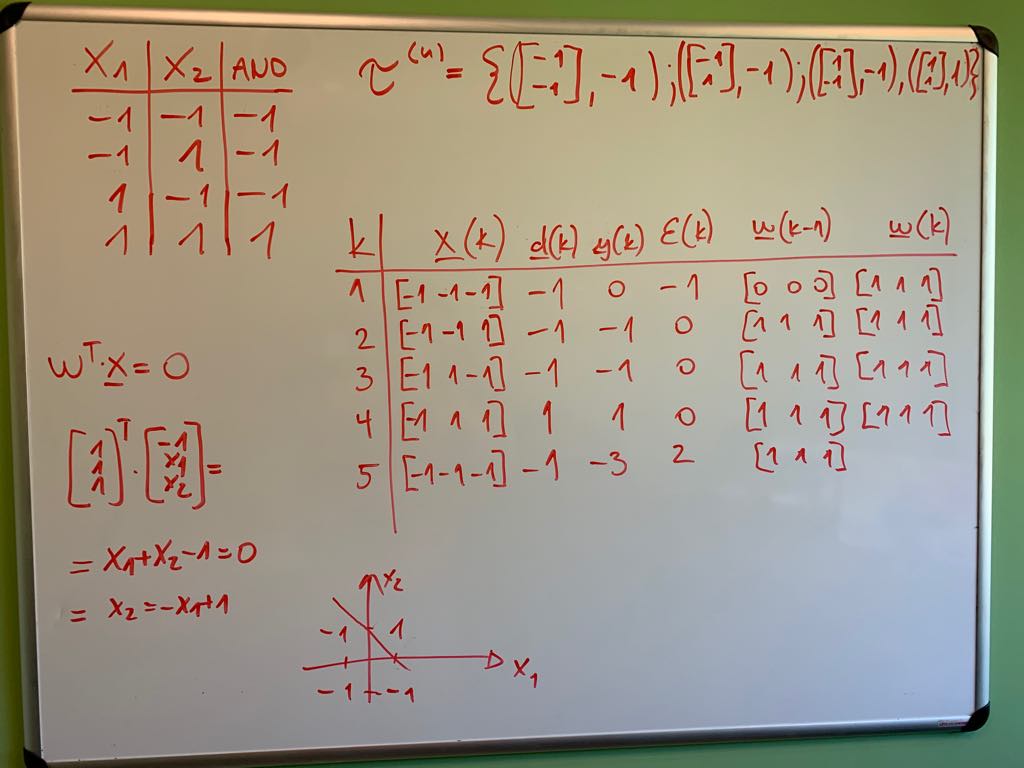 X1 | X2 | AND
-1 | -1 | -1
-1 | 1 | -1
1 | -1 | -1
1 | 1 | 1
τ^(u) = {([-1 -1], -1); ([-1 1], -1); ([1 -1], -1), ([1 1], 1)}
k | x(k) d(k) y(k) ε(k) w(k-1) w(k)
1 | [-1 -1 -1] -1 0 -1 [0 0 0] [1 1 1]
2 | [-1 -1 1] -1 -1 0 [1 1 1] [1 1 1]
3 | [-1 1 -1] -1 -1 0 [1 1 1] [1 1 1]
4 | [-1 1 1] 1 1 0 [1 1 1] [1 1 1]
5 | [-1 -1 -1] -1 -3 2 [1 1 1]
w^T · x = 0
[1 1 1]^T · [-1 x1 x2] =
= x1+x2-1=0
= x2=-x1+1
x2
-1 1
x1
-1 -1